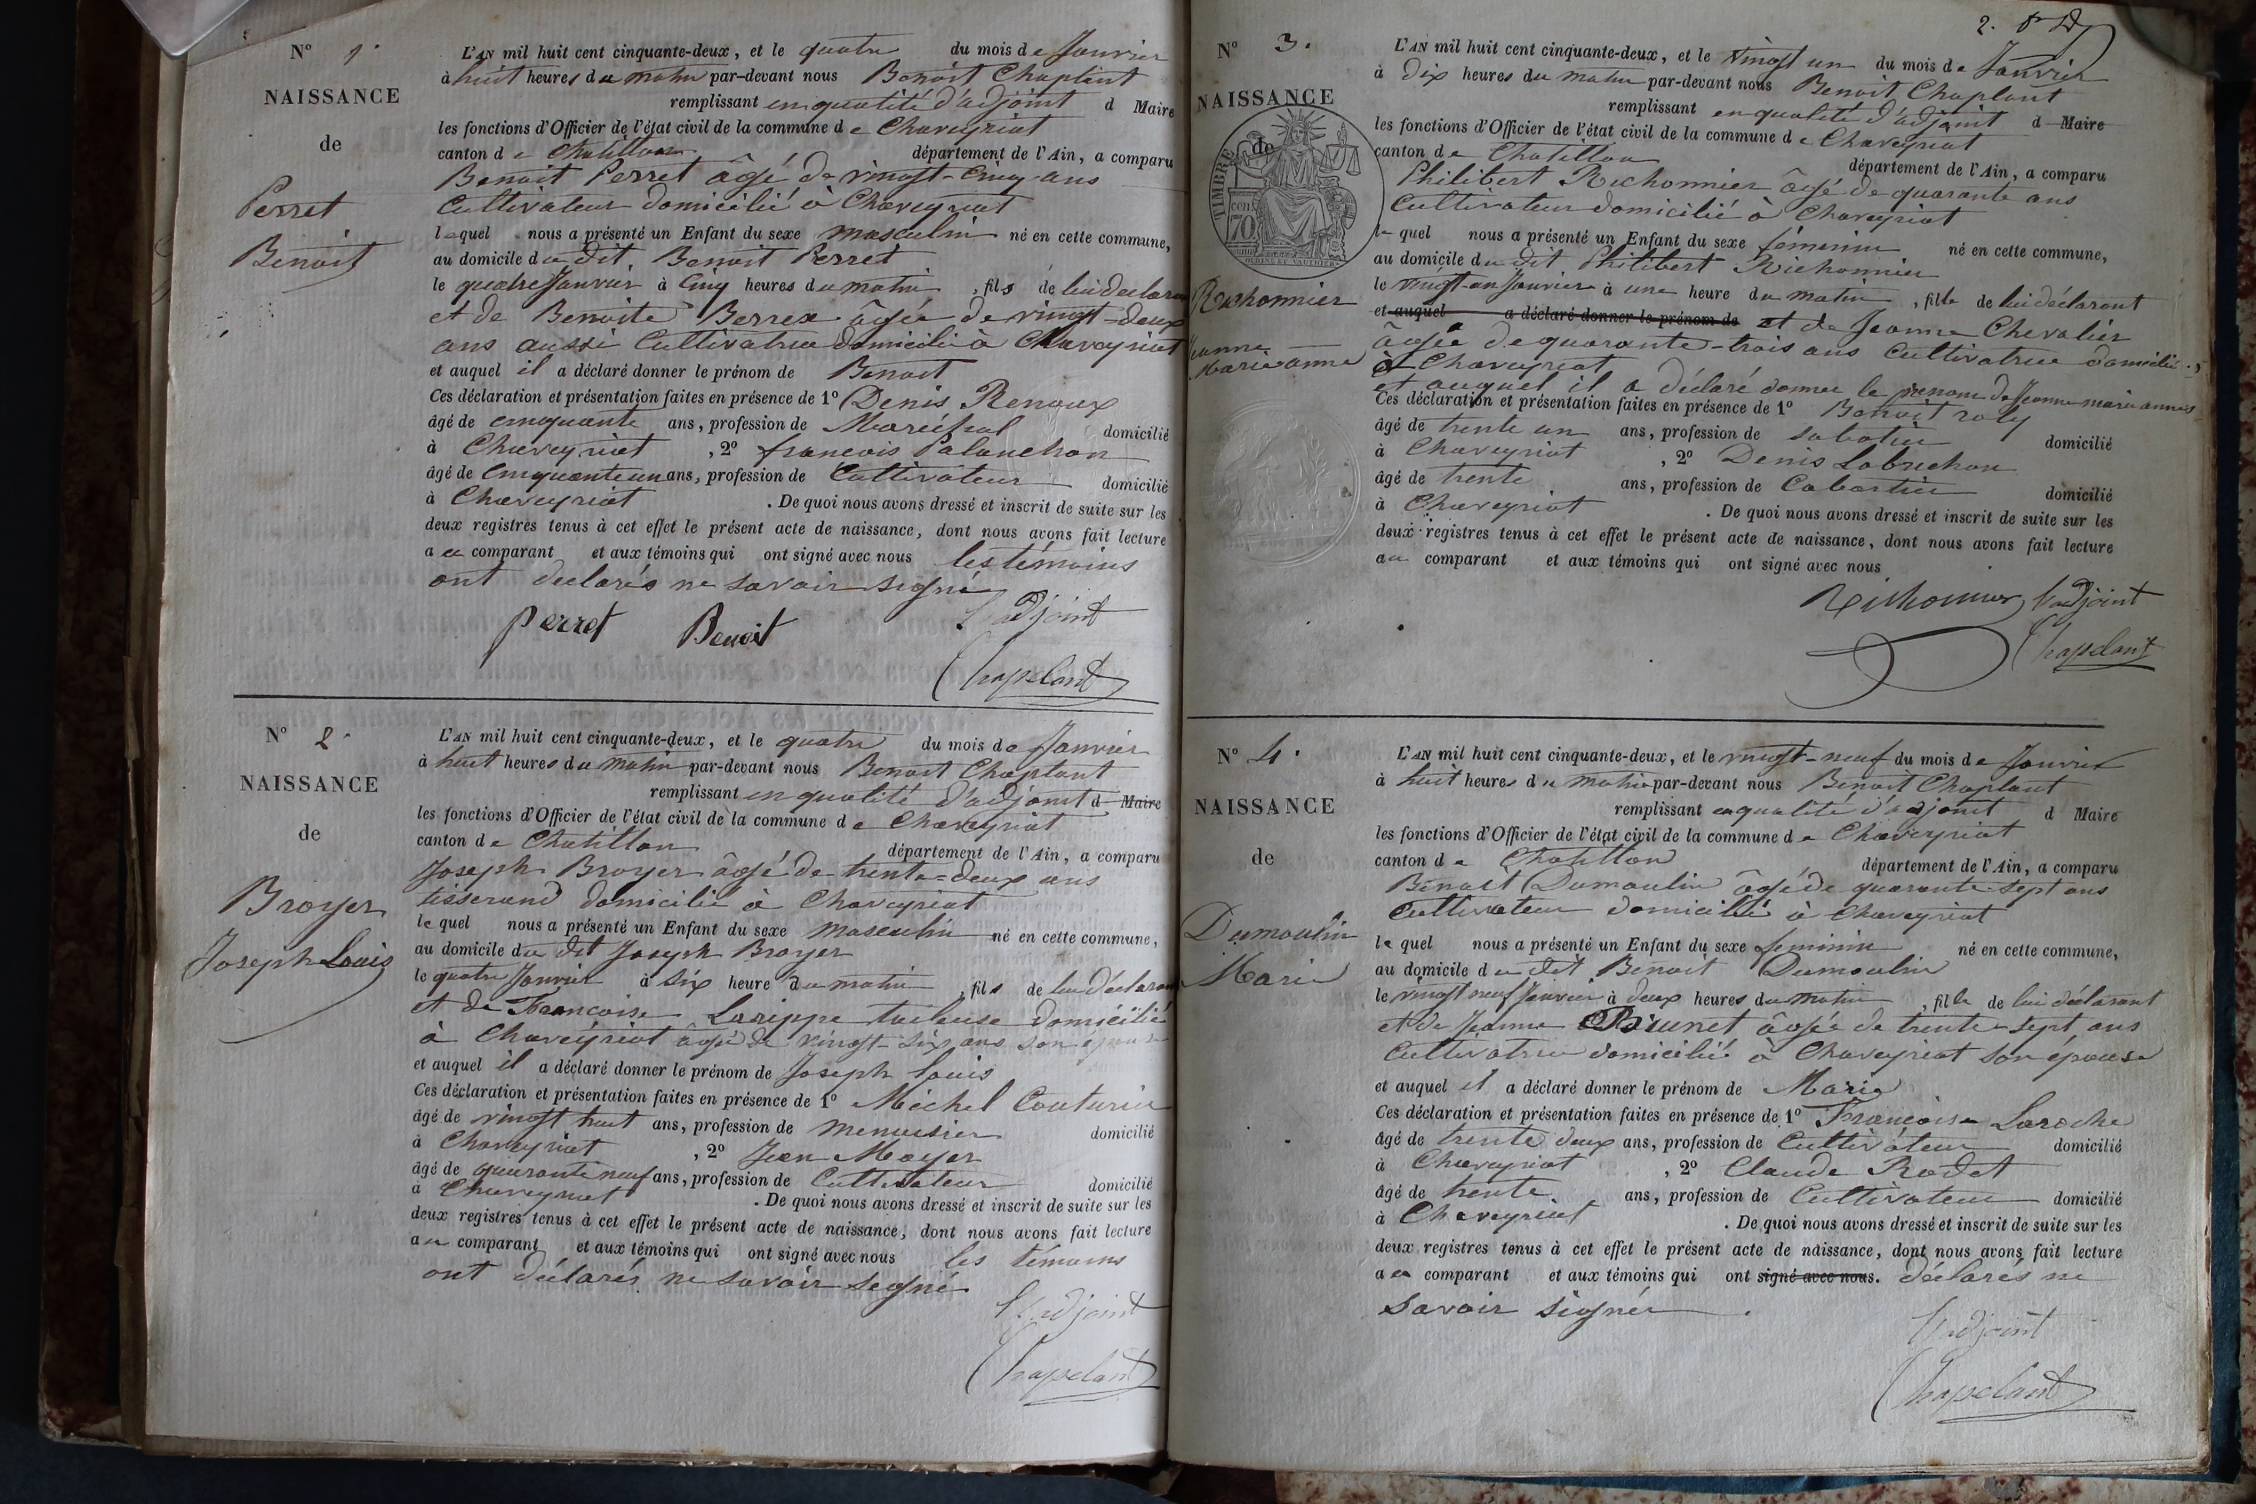 N° 1.
NAISSANCE
de
Perret
Benoit
L'AN mil huit cent cinquante-deux, et le quatre du mois de Janvier
à huit heures du matin par-devant nous Benoit Chaplant
remplissant en qualité d'adjoint d Maire
les fonctions d'Officier de l'état civil de la commune de Chaveyriat
canton de Chatillon département de l'Ain, a comparu
Benoit Perret âgé de vingt-cinq ans
Cultivateur domicilié à Chaveyriat
lequel nous a présenté un Enfant du sexe masculin né en cette commune,
au domicile du dit Benoit Perret
le quatre Janvier à Cinq heures du matin, fils de lui déclarant
et de Benoite Berrex âgée de vingt-deux
ans aussi Cultivatrice domicilié à Chaveyriat
et auquel il a déclaré donner le prénom de Benoit
Ces déclaration et présentation faites en présence de 1° Denis Renoux
âgé de cinquante ans, profession de Maréchal domicilié
à Chaveyriat, 2° francois Palanchon
âgé de Cinquante un ans, profession de Cultivateur domicilié
à Chaveyriat. De quoi nous avons dressé et inscrit de suite sur les
deux registres tenus à cet effet le présent acte de naissance, dont nous avons fait lecture
au comparant et aux témoins qui ont signé avec nous les témoins
ont declarés ne savoir signé
Perret Benoit L'adjoint
Chapelant
N° 2.
NAISSANCE
de
Broyer
Joseph Louis
L'AN mil huit cent cinquante-deux, et le quatre du mois de Janvier
à huit heures du matin par-devant nous Benoit Chaplant
remplissant en qualité d'adjoint d Maire
les fonctions d'Officier de l'état civil de la commune de Chaveyriat
canton de Chatillon département de l'Ain, a comparu
Joseph Broyer âgé de trente-deux ans
tisserand domicilié à Chaveyriat
lequel nous a présenté un Enfant du sexe masculin né en cette commune,
au domicile du dit Joseph Broyer
le quatre Janvier à six heure du matin, fils de lui déclarant
et de Francoise Larippe tailleuse domiciliée
à Chaveyriat âgée de vingt-six ans son épouse
et auquel il a déclaré donner le prénom de Joseph Louis
Ces déclaration et présentation faites en présence de 1° Michel Couturier
âgé de vingt huit ans, profession de menuisier domicilié
à Chaveyriat, 2° Jean Moyer
âgé de quarante neuf ans, profession de Cultivateur domicilié
à Chaveyriat. De quoi nous avons dressé et inscrit de suite sur les
deux registres tenus à cet effet le présent acte de naissance, dont nous avons fait lecture
au comparant et aux témoins qui ont signé avec nous les témoins
ont déclarés ne savoir signé
L'adjoint
Chapelant
2.
N° 3.
NAISSANCE
de
TIMBRE
70
Richonnier
Jeanne
Marie anne
L'AN mil huit cent cinquante-deux, et le vingt un du mois de Janvier
à dix heures du matin par-devant nous Benoit Chaplant
remplissant en qualité d'adjoint d Maire
les fonctions d'Officier de l'état civil de la commune de Chaveyriat
canton de Chatillon département de l'Ain, a comparu
Philibert Richonnier âgé de quarante ans
Cultivateur domicilié à Chaveyriat
le quel nous a présenté un Enfant du sexe féminin né en cette commune,
au domicile du dit Philibert Richonnier
le vingt-un Janvier à une heure du matin, fille de lui déclarant
et auquel a déclaré donner le prénom de et de Jeanne Chevalier
âgée de quarante-trois ans cultivatrice domiciliée
à Chaveyriat
et auquel il a déclaré donner le prenom de Jeanne marie anne
Ces déclaration et présentation faites en présence de 1° Benoit roly
âgé de trente un ans, profession de sabotier domicilié
à Chaveyriat, 2° Denis Labruchon
âgé de trente ans, profession de Cabartier domicilié
à Chaveyriat. De quoi nous avons dressé et inscrit de suite sur les
deux registres tenus à cet effet le présent acte de naissance, dont nous avons fait lecture
au comparant et aux témoins qui ont signé avec nous
Richonnier L'adjoint
Chapelant
N° 4.
NAISSANCE
de
Dumoulin
Marie
L'AN mil huit cent cinquante-deux, et le vingt-neuf du mois de Janvier
à huit heures du matin par-devant nous Benoit Chaplant
remplissant en qualité d'adjoint d Maire
les fonctions d'Officier de l'état civil de la commune de Chaveyriat
canton de Chatillon département de l'Ain, a comparu
Benoit Dumoulin âgé de quarante-sept ans
Cultivateur domicilié à Chaveyriat
le quel nous a présenté un Enfant du sexe feminin né en cette commune,
au domicile du dit Benoit Dumoulin
le vingt neuf Janvier à deux heures du matin, fille de lui déclarant
et de Jeanne Brunet âgée de trente-sept ans
Cultivatrice domicilié à Chaveyriat son épouse
et auquel il a déclaré donner le prénom de Marie
Ces déclaration et présentation faites en présence de 1° Francoise Laroche
âgé de trente deux ans, profession de Cultivateur domicilié
à Chaveyriat, 2° Claude Rodet
âgé de trente ans, profession de Cultivateur domicilié
à Chaveyriat. De quoi nous avons dressé et inscrit de suite sur les
deux registres tenus à cet effet le présent acte de naissance, dont nous avons fait lecture
au comparant et aux témoins qui ont signé avec nous. déclarés ne
savoir signer.
L'adjoint
Chapelant